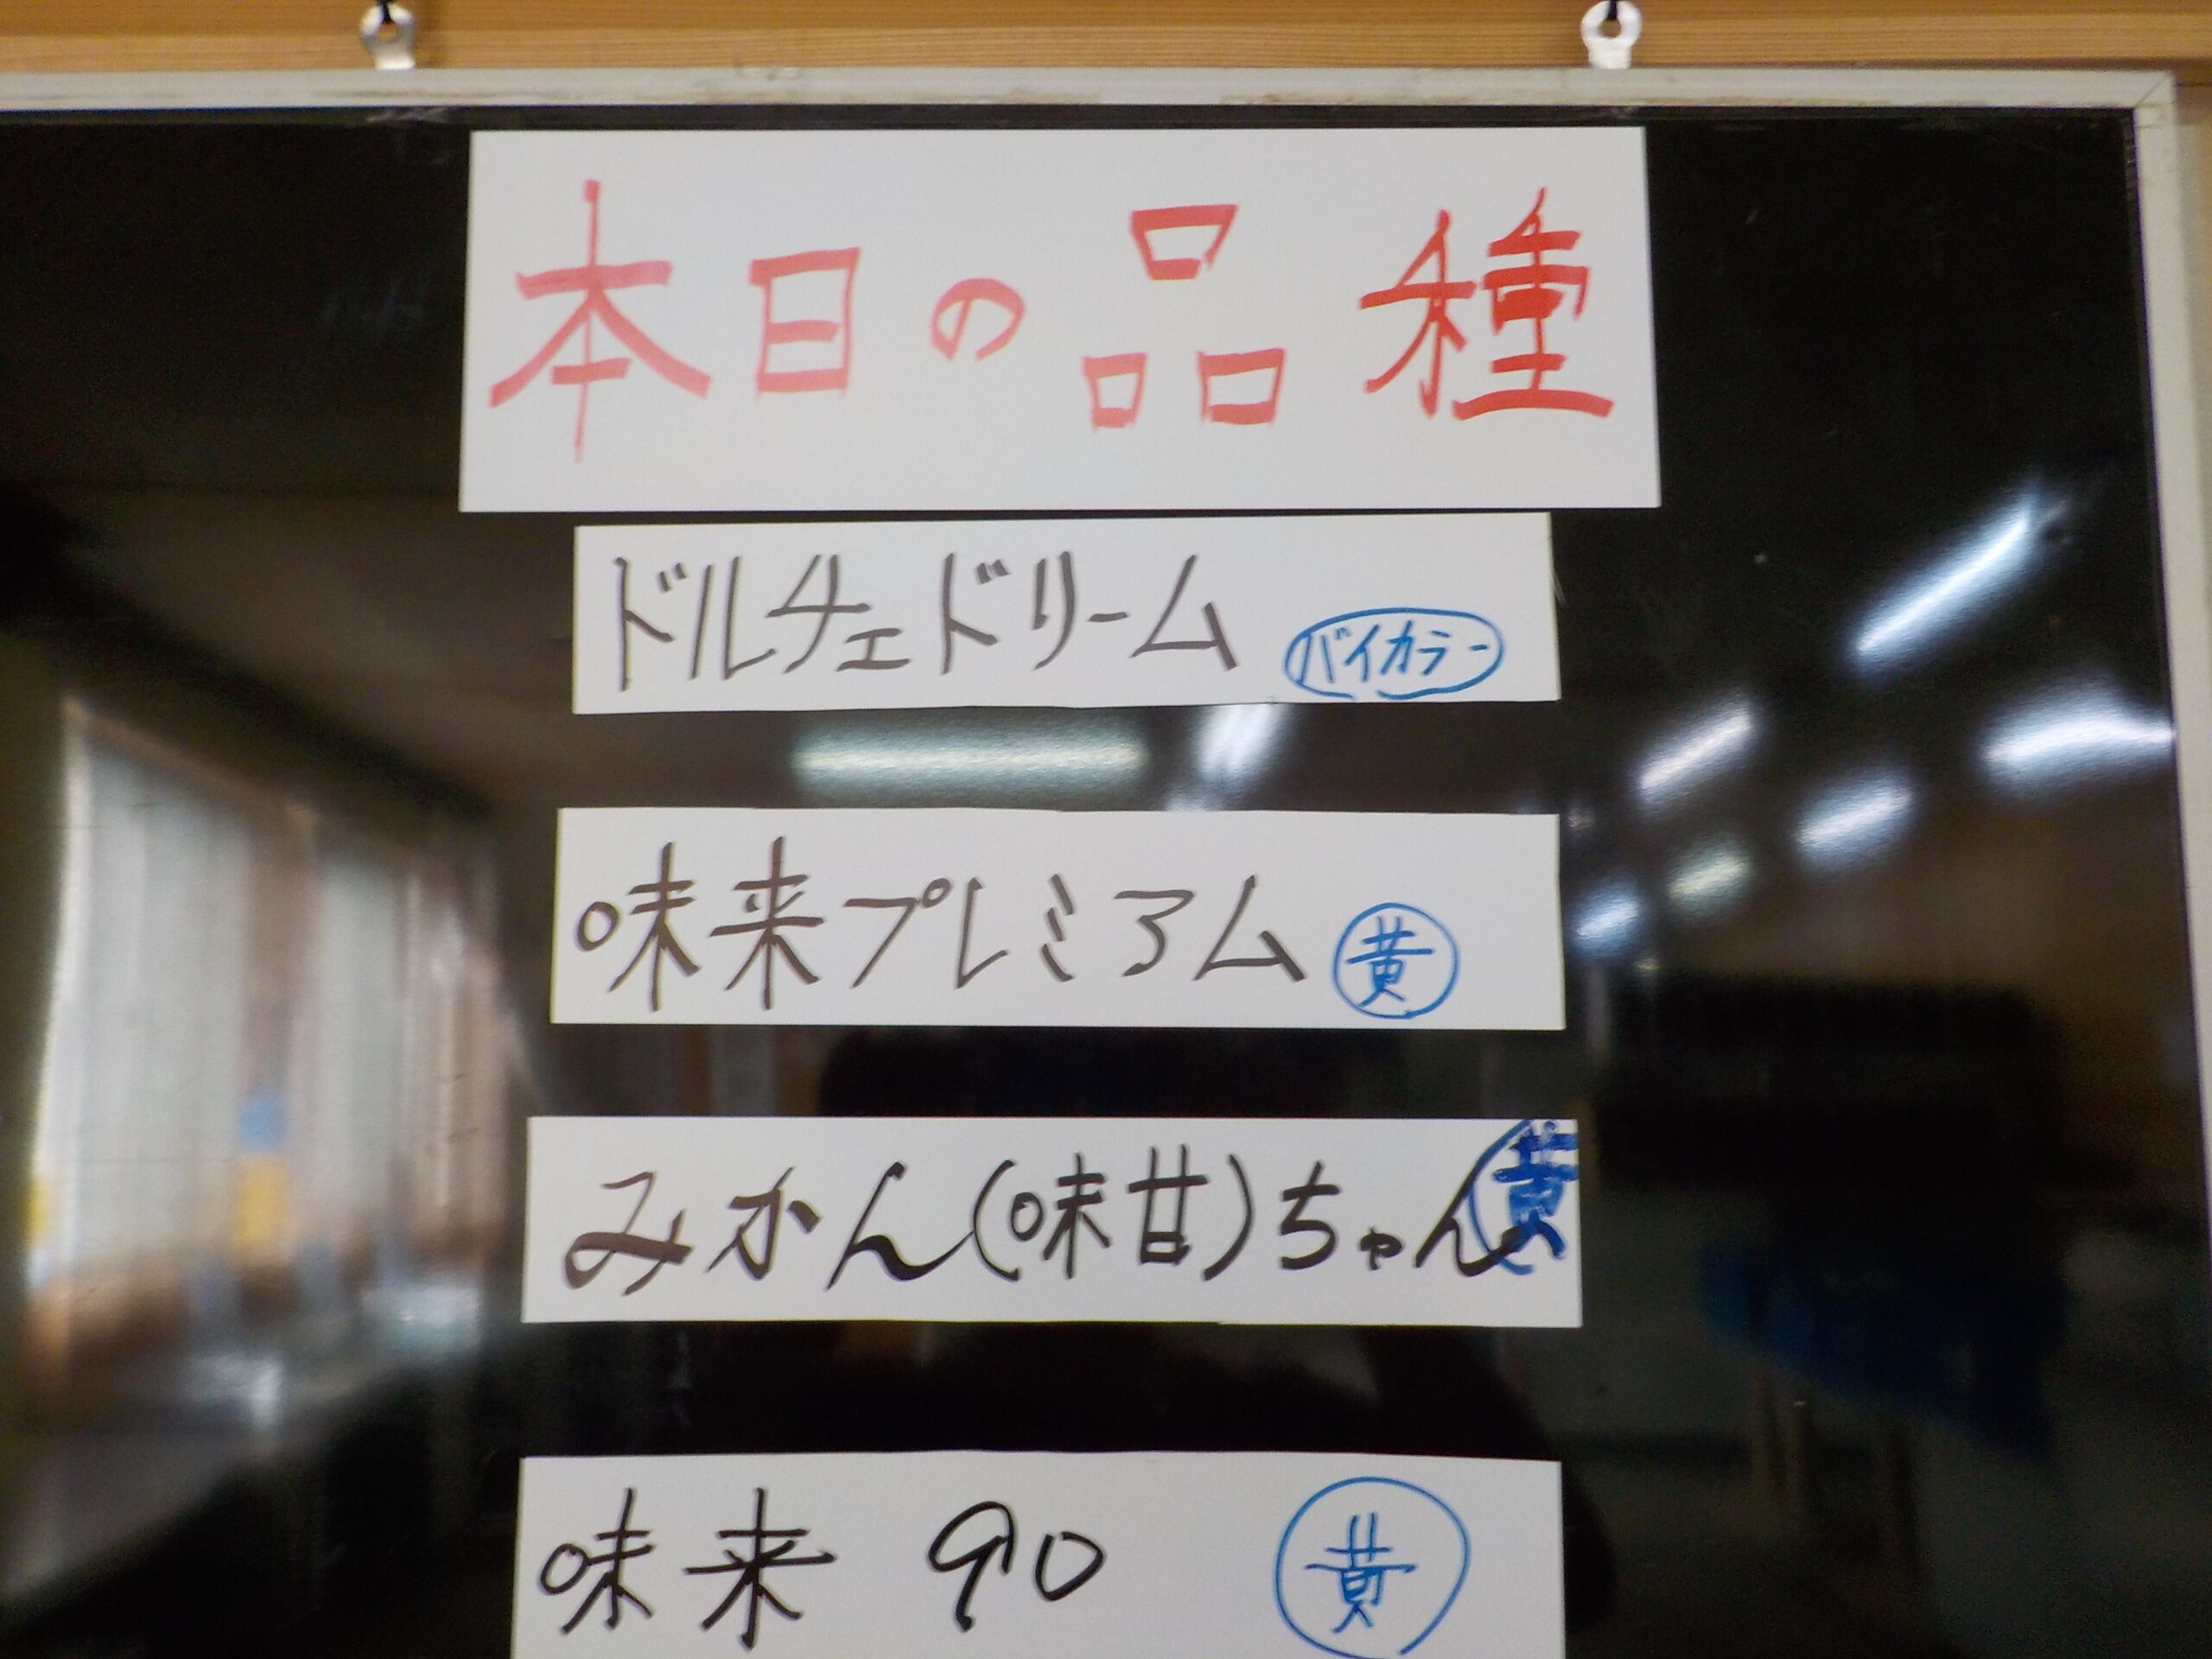 本日の品種
ドルチェドリーム バイカラー
味来プレミアム 黄
みかん(味甘)ちゃん 黄
味来 90 黄